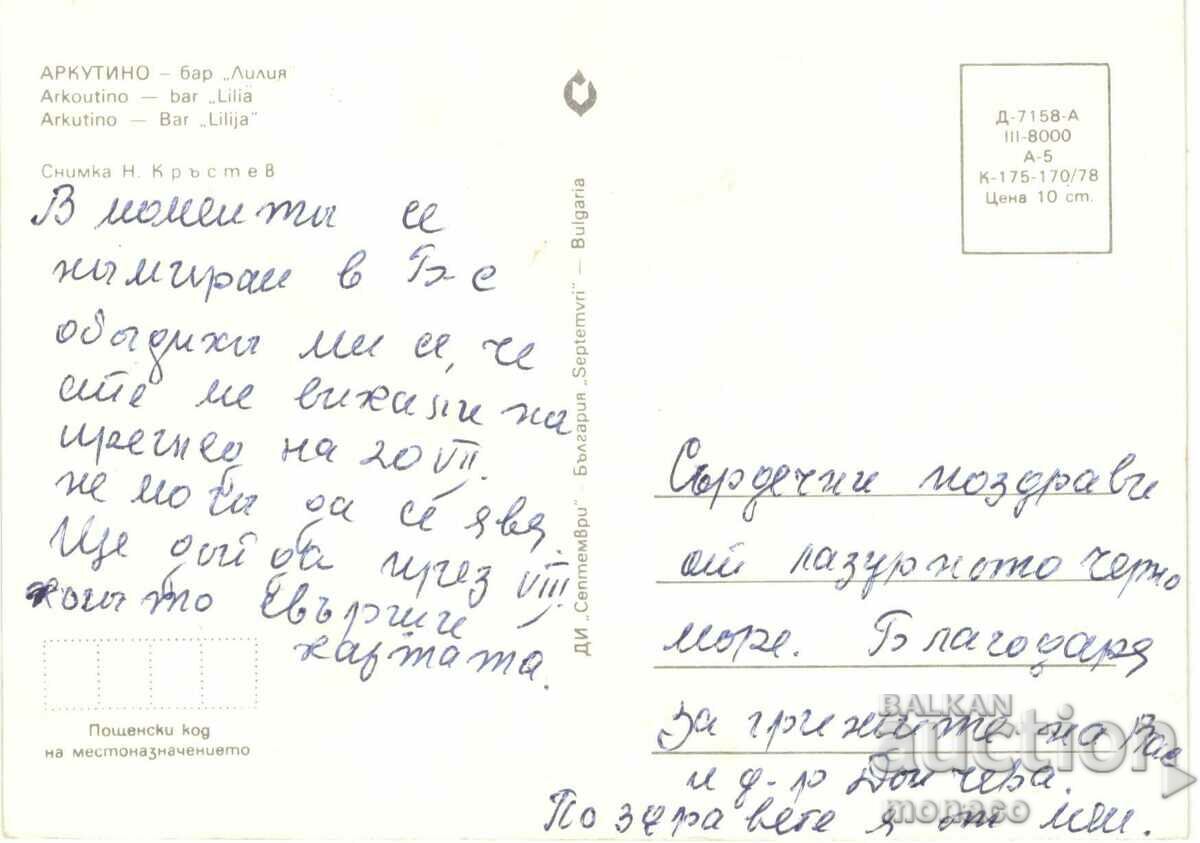 АРКУТИНО – бар „Лилия
Arkoutino — bar „Lilia
Arkutino — Bar „Lilija"
Снимка Н. Кръстев
В момента се
намирам в Б-с
обадиха ми се, че
сте ме викали на
преглед на 20 VII.
не мога да се явя.
Ще дойда през VIII
когато свърши
картата.
Пощенски код
на местоназначението
ДИ „Септември" – България „Septemvri" – Bulgaria
Д-7158-А
III-8000
А-5
К-175-170/78
Цена 10 ст.
Сърдечни поздрави
от лазурното черно
море. Благодаря
за грижите на Вас
и д-р Дойчева.
Поздравете я от мен.
BALKAN
auction
monaco